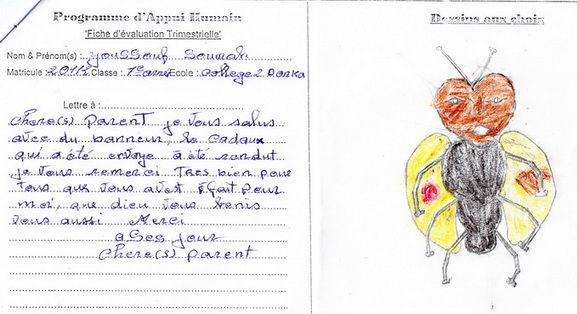 Programme d'Appui Humain
'Fiche d'évaluation Trimestrielle'
Dessins aux choix
Nom & Prénom(s) : youssouf
Matricule : Classe : 1ere anne Ecole : College 2 Dorka
Lettre à :
Chere(s) parent je vous salus
avec du bonneur, le Cadaux
qui a été envoye a été rendut
je vous remerci Tres bien pour
Tous que vous avet fçait pour
moi, que dieu vous benis
vous aussi Merci
a Ses jour
Chere(s) parent